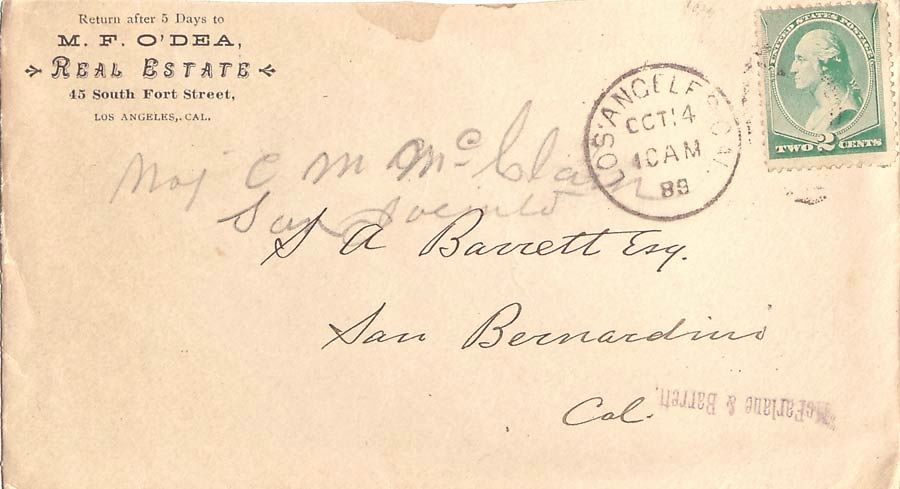 Return after 5 Days to
M. F. O'DEA,
REAL ESTATE
45 South Fort Street,
LOS ANGELES, CAL.
UNITED STATES POSTAGE
TWO 2 CENTS
LOS ANGELES CAL.
OCT 14
10 AM
89
Maj C M McClain
San Jacinto
S A Barrett Esq.
San Bernardino
Cal.
McFarlane & Barrett.